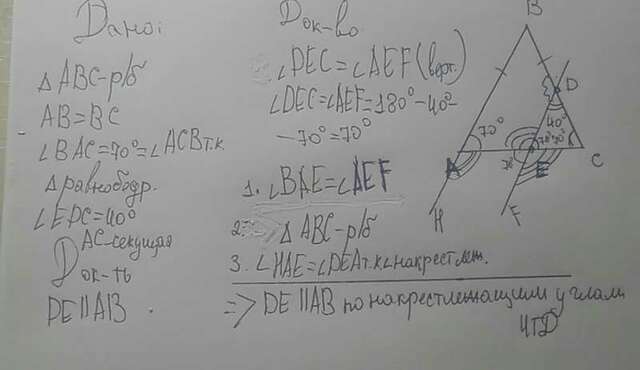 Дано:
△ABC-р/б
AB=BC
∠BAC=70°=∠ACB т.к.
△равнобедр.
∠EDC=40°
AC-секущая
Док-ть
DE||AB
Док-во
∠DEC=∠AEF(верт.)
∠DEC=∠AEF=180°-40°-
-70°=70°
1. ∠BAE=∠AEF
2. △ABC-р/б
3. ∠HAE=∠DEA т.к ∠накрест леж.
=> DE||AB по накрестлежащим углам
ЧТД
B
D
40°
70°
70°
70°
A
E
C
H
F